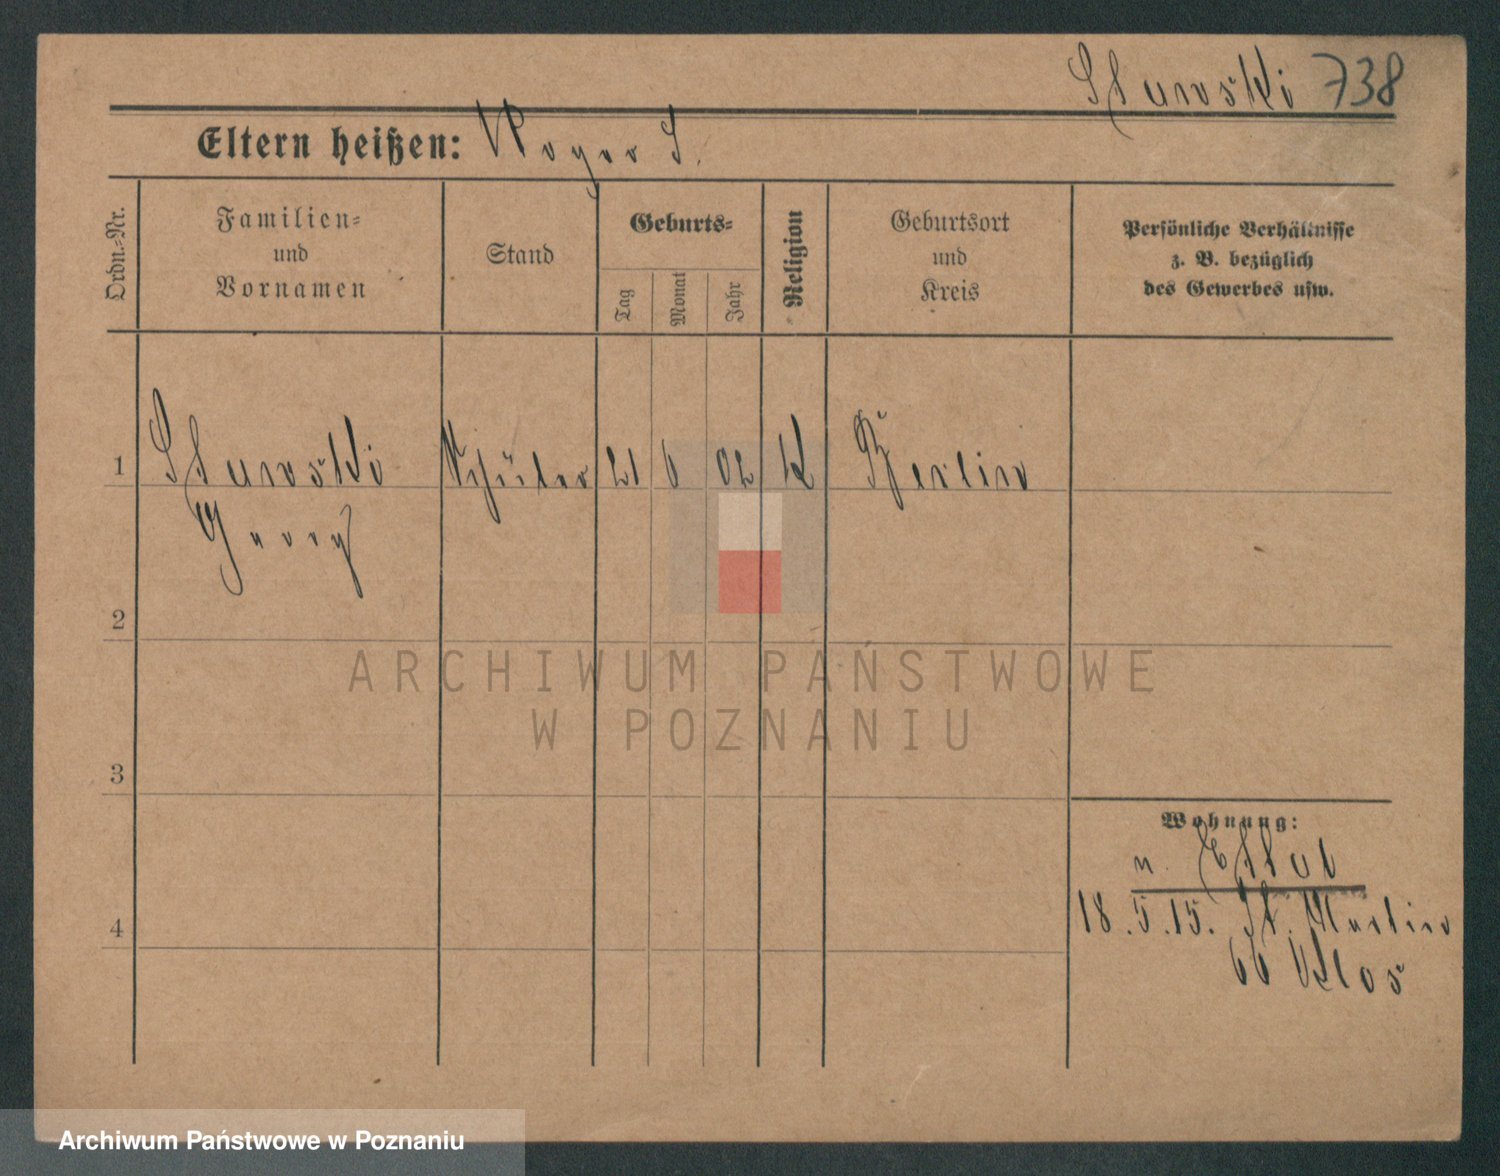 Sturski 738
Eltern heißen: Roger S.
Ordn.=Nr.
Familien=
und
Vornamen
Stand
Geburts=
Tag
Monat
Jahr
Religion
Geburtsort
und
Kreis
Persönliche Verhältnisse
z. B. bezüglich
des Gewerbes usw.
1
Schüler 21 6 02 K Berlin
Georg
2
3
4
Wohnung:
18.5.15. St. Martin
66
ARCHIWUM PAŃSTWOWE
W POZNANIU
Archiwum Państwowe w Poznaniu